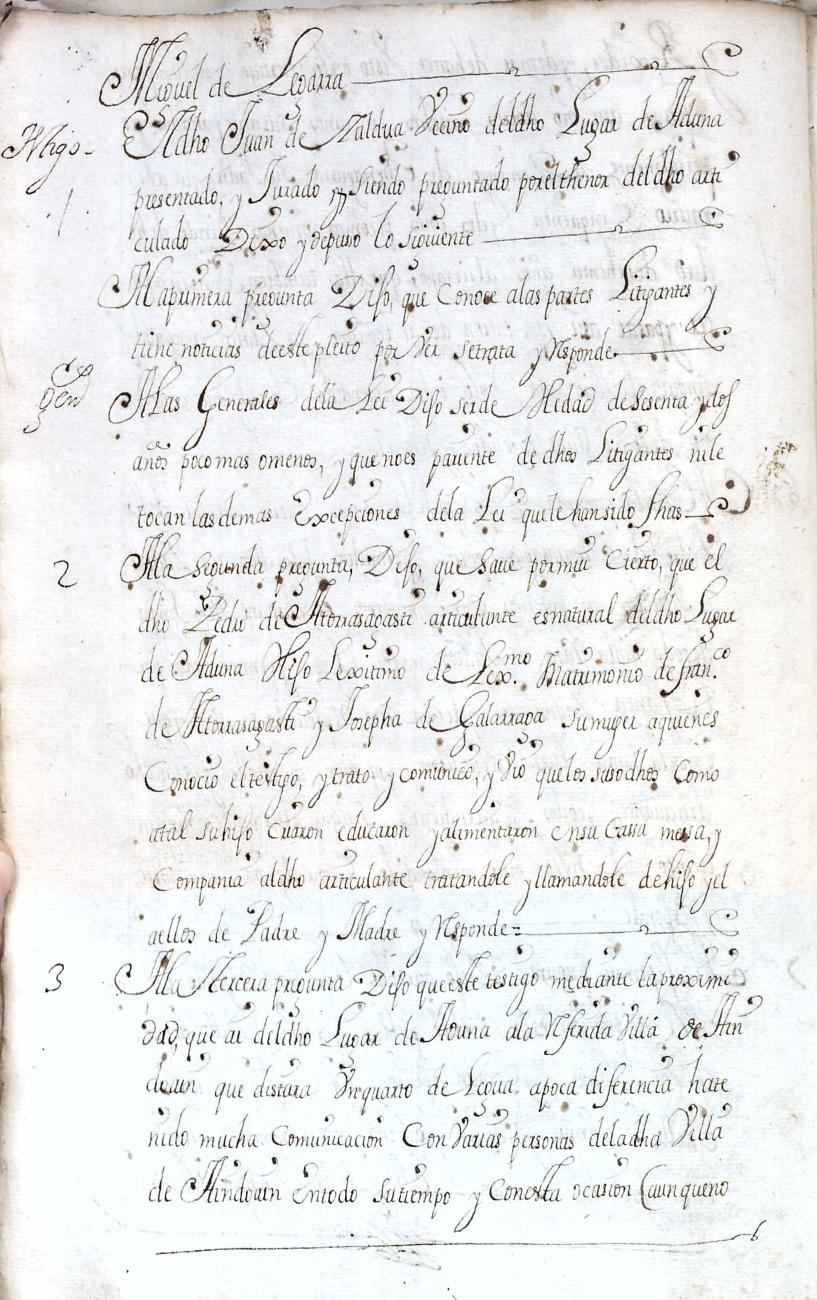 Miguel de Legarra
Testigo
1
El dho Juan de Zaldua Vecino del dho Lugar de Aduna
presentado, y Jurado, y Siendo preguntado por el thenor del dho arti
culado Dixo y depuso lo siguiente
A la primera pregunta Diso, que Conoce a las partes Litigantes y
tiene noticias de este pleito por Ver se trata y Responde
Gen
A las Generales de la Lei Diso ser de Hedad de Sesenta y dos
años poco mas o menos, y que no es pariente de dhos Litigantes ni le
tocan las demas Excepciones de la Lei que le han sido fhas
2
A la Segunda pregunta, Diso, que Save por mui Cierto, que el
dho Pedro de Aterrasagasti articulante es natural del dho Lugar
de Aduna Hiso Lexitimo de Lex.mo Matrimonio de fran.co
de Aterrasagasti y Josepha de Galarraga Su muger a quienes
Conocio el testigo, y trato y comunico, y Vio que los suso dhos Como
a tal su hiso Criaron educaron y alimentaron en su Cassa messa, y
Compania al dho articulante tratandole y llamandole de hiso y el
a ellos de Padre y Madre y Responde=
3
A la Tercera pregunta Diso que este testigo mediante la proximi
dad, que ai del dho Lugar de Aduna a la Referida Villa de Ain
doain que distara Un quarto de Legua a poca diferencia ha te
nido mucha Comunicacion Con Varias personas de la dha Villa
de Aindoain En todo su tiempo y Con esta ocasion (aunque no